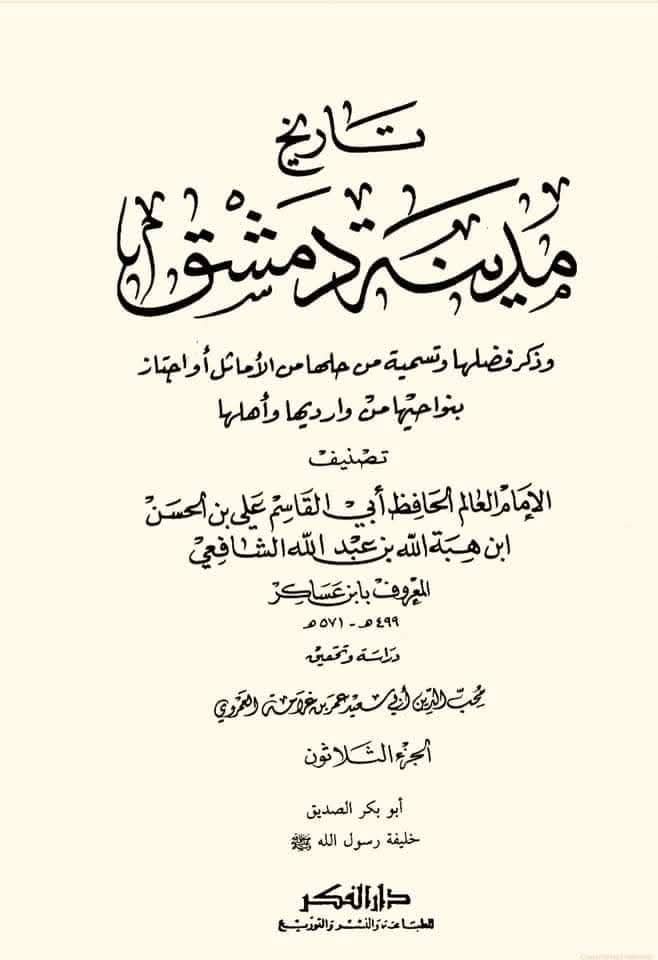 تاريخ
مدينة دمشق
وذكر فضلها وتسمية من حلها من الأماثل أو اجتاز
بنواحيها من وارديها وأهلها
تصنيف
الإمام العالم الحافظ أبي القاسم علي بن الحسن
ابن هبة الله بن عبد الله الشافعي
المعروف بابن عساكر
٤٩٩ هـ - ٥٧١ هـ
دراسة وتحقيق
محب الدين أبي سعيد عمر بن غرامة العمروي
الجزء الثلاثون
أبو بكر الصديق
خليفة رسول الله ﷺ
دار الفكر
للطباعة والنشر والتوزيع